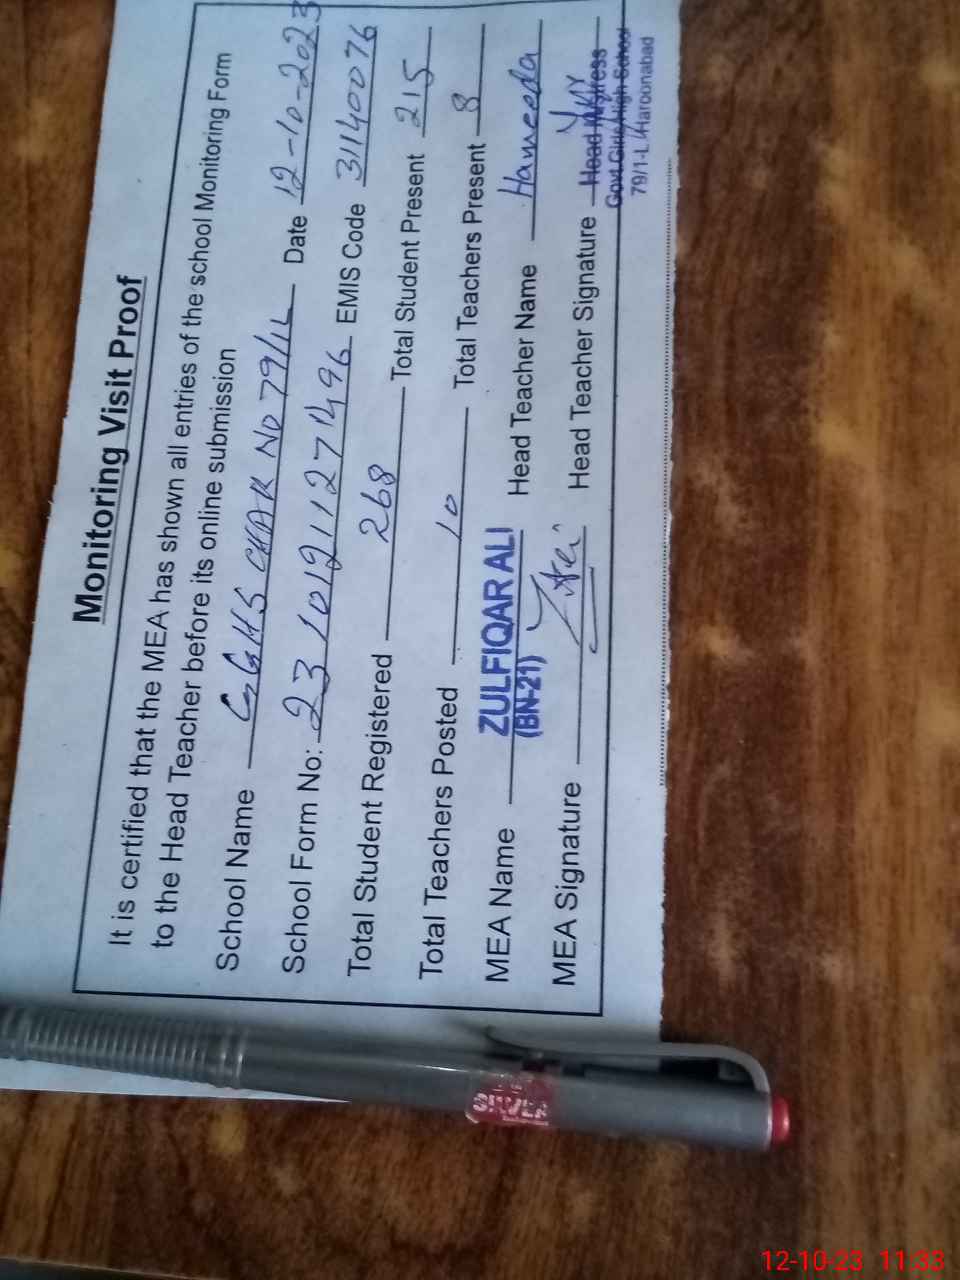 Monitoring Visit Proof
It is certified that the MEA has shown all entries of the school Monitoring Form
to the Head Teacher before its online submission
School Name GGHS CHAK NO 79/1L Date 12-10-2023
School Form No: 23101911271496 EMIS Code 31140076
Total Student Registered 268 Total Student Present 215
Total Teachers Posted 10 Total Teachers Present 8
MEA Name ZULFIQAR ALI Head Teacher Name Hameeda
(BN-21)
MEA Signature ZAli Head Teacher Signature
Head Mistress
Govt. Girls High School
79/1-L Haroonabad
SILVER
12-10-23 11:33